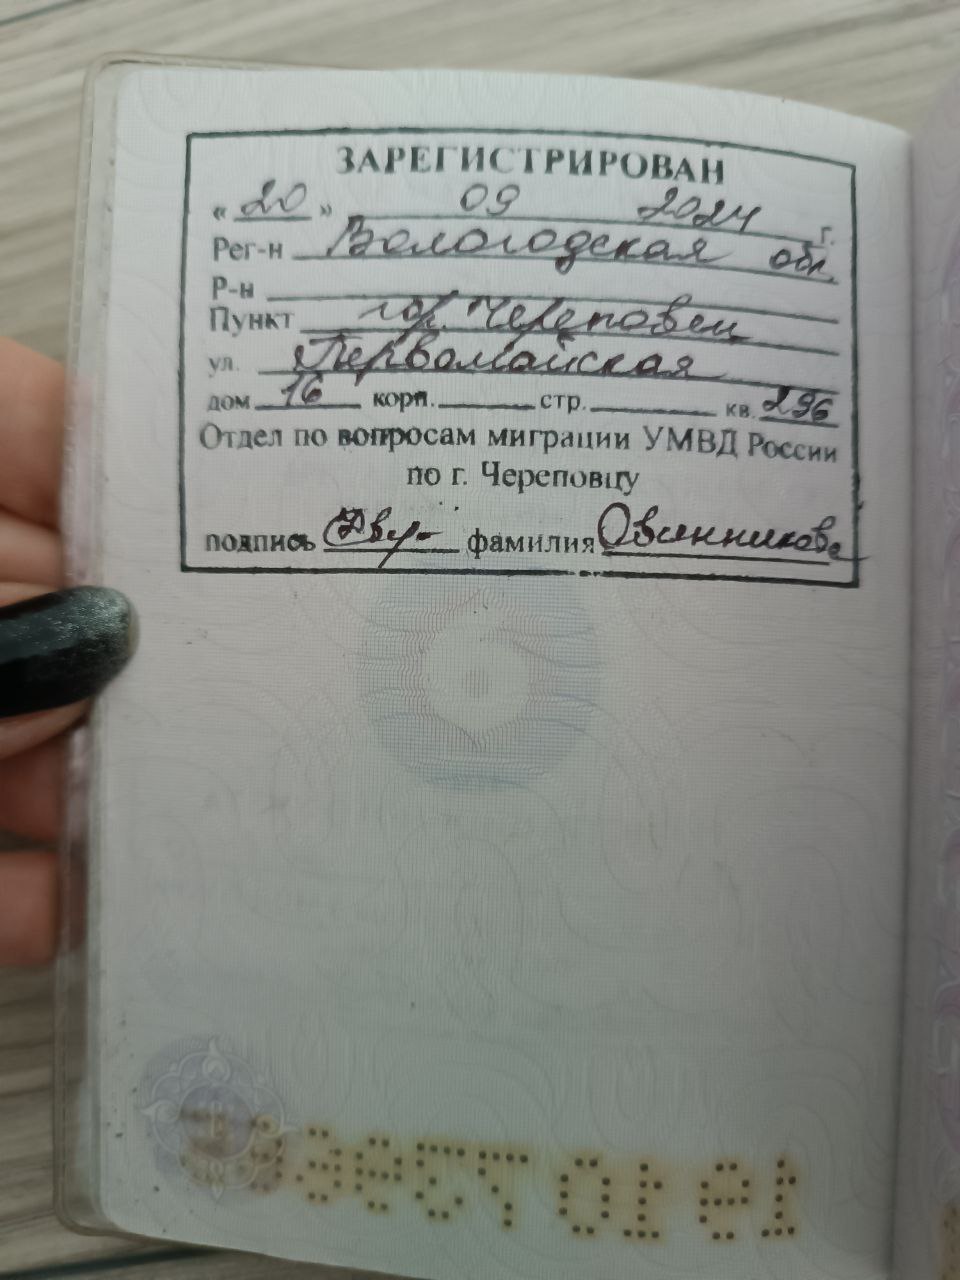 ЗАРЕГИСТРИРОВАН
« 20 » 09 2024 г.
Рег-н Вологодская обл.
Р-н
Пункт гор. Череповец
ул. Первомайская
дом 16 корп. стр. кв. 296
Отдел по вопросам миграции УМВД России
по г. Череповцу
подпись фамилия Овсянникова